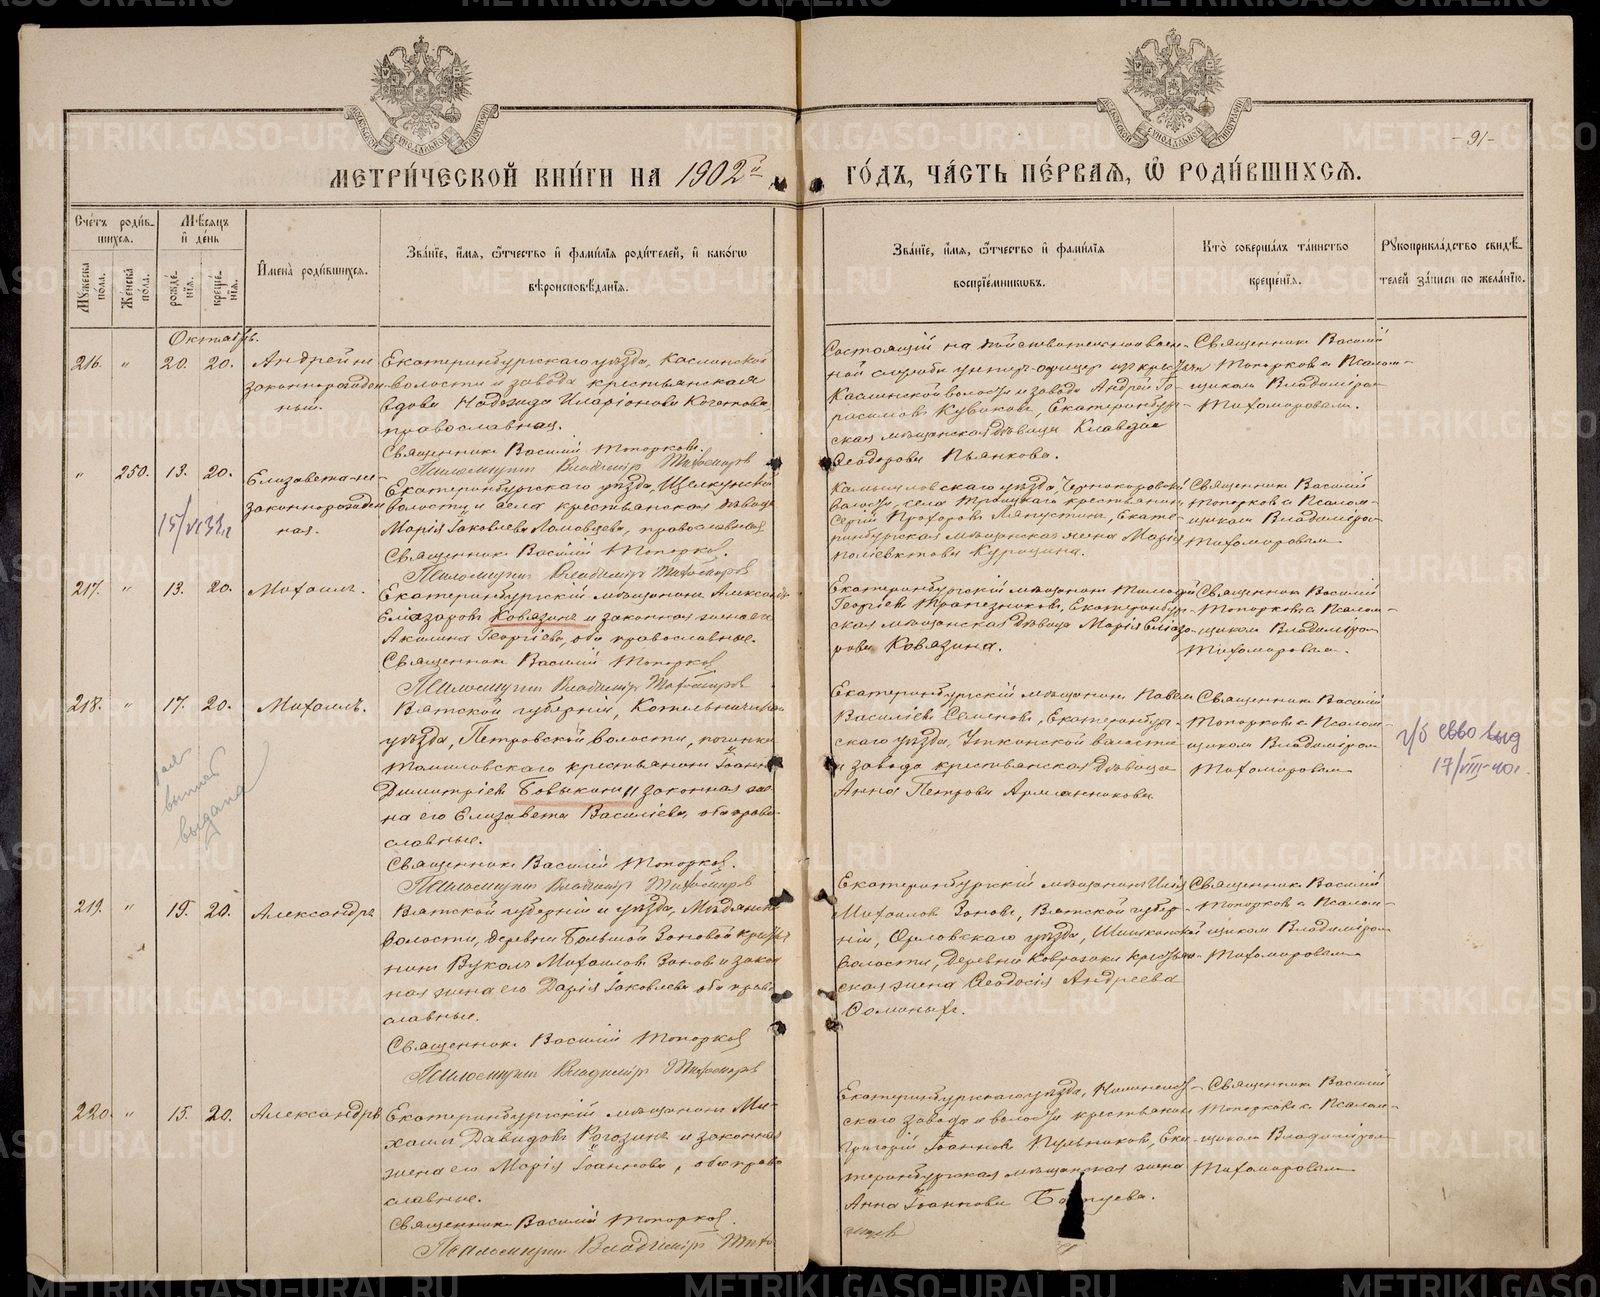 МЕТРИ́ЧЕСКОЙ КНИ́ГИ НА 1902й
ГО́ДЪ, ЧА́СТЬ ПЕ́РВАѦ, Ѽ РОДИ́ВШИХСѦ.
-91-
Счётъ роди́в-
шихсѧ.
Мѣ́сѧцъ
и҆ де́нь
Мꙋжеска пола.
Же́нска по́ла.
рожде́нїѧ.
креще́нїѧ.
И҆мена̀ роди́вшихсѧ.
Зва́нїе, и҆́мѧ, ѻ҆́тчество и҆ фами́лїѧ роди́телей, и҆ како́гѡ
вѣроисповѣ́данїѧ.
Зва́нїе, и҆́мѧ, ѻ҆́тчество и҆ фами́лїѧ
воспрїе́мникѡвъ.
Кто̀ соверша́лъ та́инство
креще́нїѧ.
Рꙋкоприкла́дство свидѣ́-
телей за́писи по жела́нїю.
Октябрь.
216. " 20. 20. Андрей не
законнорожден-
ный.
Екатеринбургскаго уѣзда, Каслинской
волости и завода крестьянская
вдова Надежда Иларіонова
православная.
Священникъ Василій Топорковъ.
Псаломщикъ Владиміръ Тихомировъ
Состоящій на
ной службѣ унтеръ-офицеръ изъ крестьянъ
Каслинской волости и завода Андрей Ге-
расимовъ Куваковъ, Екатеринбург-
ская мѣщанская дѣвица Клавдія
Ѳеодорова Пьянкова.
Священникъ Василій
Топорковъ съ Псалом-
щикомъ Владиміромъ
Тихомировымъ.
" 250. 13. 20. Елизавета не-
законнорожден
ная.
Екатеринбургскаго уѣзда, Щелкунской
волости и села крестьянская дѣвица
Марія Іаковлева православная
Священникъ Василій Топорковъ.
Псаломщикъ Владиміръ Тихомировъ
Камышловскаго уѣзда,
волости, села Троицкаго крестьянинъ
Сергій Прохоровъ Ляпустинъ, Екате-
ринбургская мѣщанская жена Марія
Поліевктова Курицына.
Священникъ Василій
Топорковъ съ Псалом-
щикомъ Владиміромъ
Тихомировымъ
217. " 13. 20. Михаилъ.
Екатеринбургскій мѣщанинъ Александръ
Еліазаровъ Ковязинъ и законная жена его
Акилина Георгіева, оба православные.
Священникъ Василій Топорковъ
Псаломщикъ Владиміръ Тихомировъ
Екатеринбургскій мѣщанинъ
Георгіевъ Трапезниковъ, Екатеринбург-
ская мѣщанская дѣвица Марія Еліаза-
рова Ковязина.
Священникъ Василій
Топорковъ съ Псалом-
щикомъ Владиміромъ
Тихомировымъ.
218. " 17. 20. Михаилъ.
Вятской губерніи, Котельническаго
уѣзда, Петровской волости, починка
Томиловскаго крестьянинъ Іоаннъ
Димитріевъ Бовыкинъ и законная же-
на его Елизавета Васильева, оба право-
славные.
Священникъ Василій Топорковъ.
Псаломщикъ Владиміръ Тихомировъ
Екатеринбургскій мѣщанинъ Павелъ
Василіевъ Семеновъ, Екатеринбург-
скаго уѣзда, Уткинской волости
и завода крестьянская дѣвица
Анна Петрова
Священникъ Василій
Топорковъ съ Псалом-
щикомъ Владиміромъ
Тихомировымъ
17/VIII-40г.
выпись
выдана
219. " 19. 20. Александръ
Вятской губерніи и уѣзда, Мѣдянской
волости, деревни Большой Зоновой крестья-
нинъ Вуколъ Михаиловъ Зоновъ и закон-
ная жена его Дарія Іаковлева оба право-
славные.
Священникъ Василій Топорковъ
Псаломщикъ Владиміръ Тихомировъ
Екатеринбургскій мѣщанинъ Илія
Михаиловъ Зоновъ, Вятской губер-
ніи, Орловскаго уѣзда,
волости, деревни крестьян-
ская жена Ѳеодосія Андреева
Священникъ Василій
Топорковъ съ Псалом-
щикомъ Владиміромъ
Тихомировымъ
220. " 15. 20. Александръ
Екатеринбургскій мѣщанинъ Ми-
хаилъ Давидовъ Рогозинъ и законная
жена его Марія Іоаннова, оба право-
славные.
Священникъ Василій Топорковъ.
Псаломщикъ Владиміръ Тихо
Екатеринбургскаго уѣзда,
скаго завода и волости крестьянинъ
Григорій Іоанновъ Пульниковъ, Ека-
теринбургская мѣщанская жена
Анна Іоаннова
Священникъ Василій
Топорковъ съ Псалом-
щикомъ Владиміромъ
Тихомировымъ
METRIKI.GASO-URAL.RU